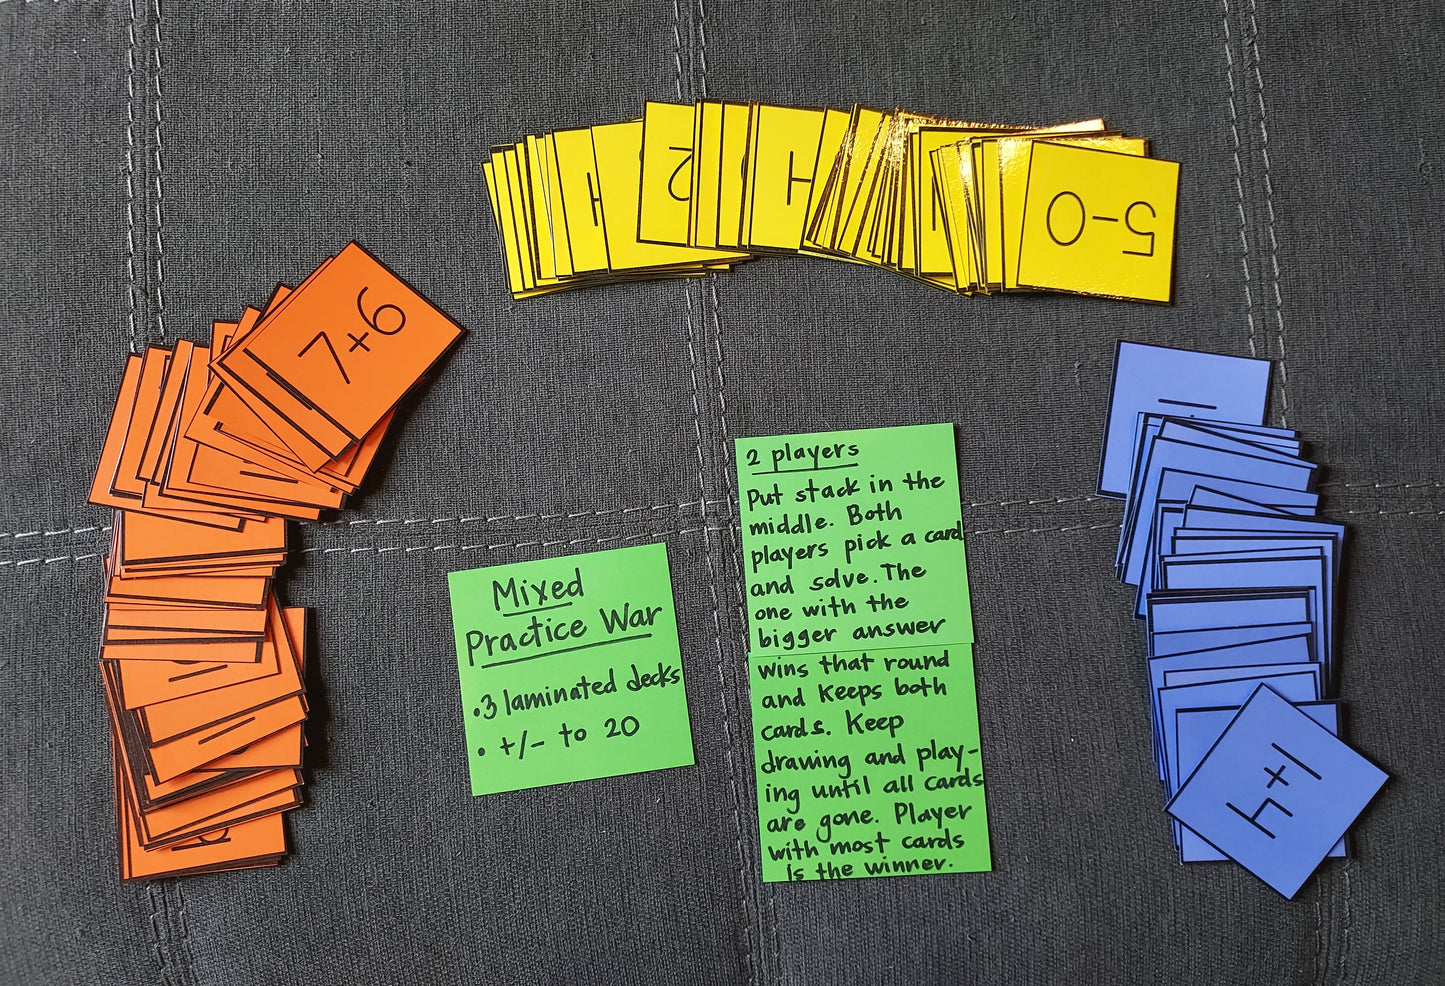 5-0
7+6
Mixed
Practice War
• 3 laminated decks
• +/- to 20
2 players
Put stack in the
middle. Both
players pick a card
and solve. The
one with the
bigger answer
wins that round
and keeps both
cards. Keep
drawing and play-
ing until all cards
are gone. Player
with most cards
is the winner.
4+1